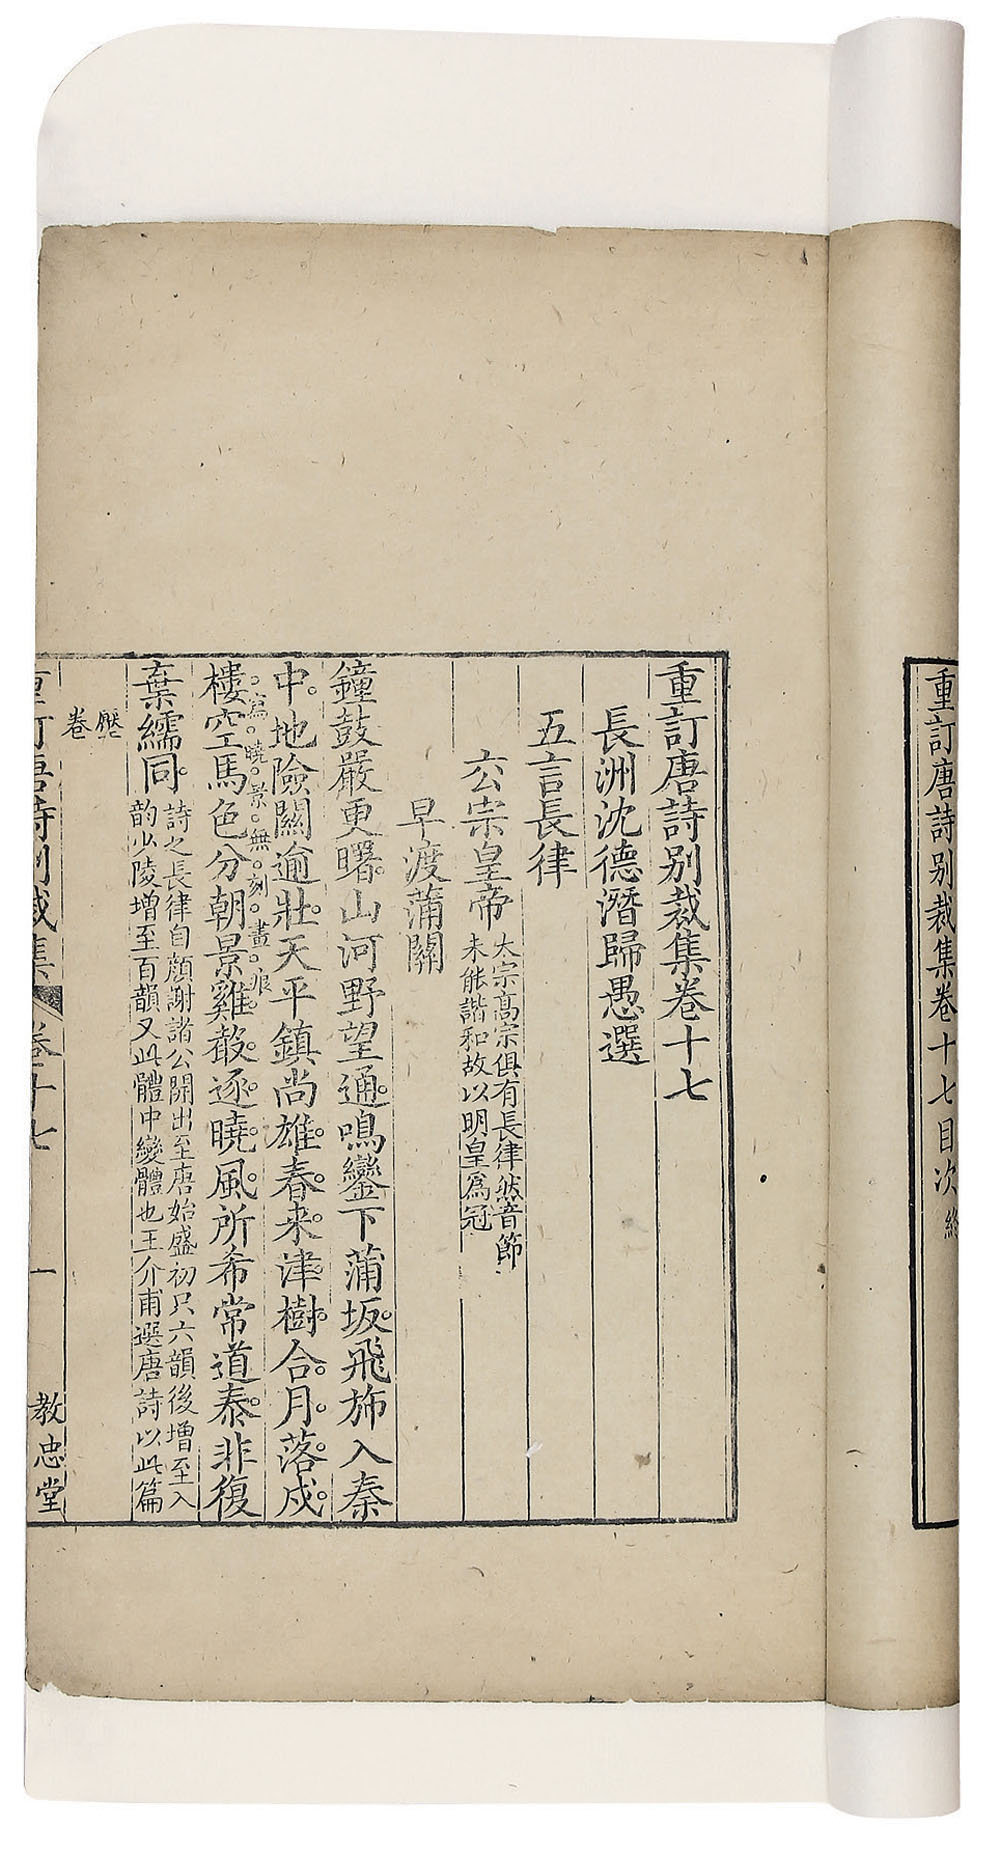 重訂唐詩别裁集卷十七目次終
重訂唐詩别裁集卷十七
長洲沈德潛歸愚選
五言長律
玄宗皇帝
太宗高宗俱有長律然音節
未能諧和故以明皇爲冠
早渡蒲關
鐘鼓嚴更曙。山河野望通。鳴鑾下蒲坂。飛斾入秦
中。地險關逾壯。天平鎮尚雄。春。來。津。樹。合。月。落。戍。
樓。空。馬色分朝景。雞。聲。逐。曉。風。所希常道泰。非復
寫曉景無刻畫痕
棄繻同。
詩之長律自顔謝諸公開出至唐始盛初只六韻後增至入
韵少陵增至百韻又此體中變體也王介甫選唐詩以此篇
壓
卷
重訂唐詩别裁集 卷十七 一 教忠堂